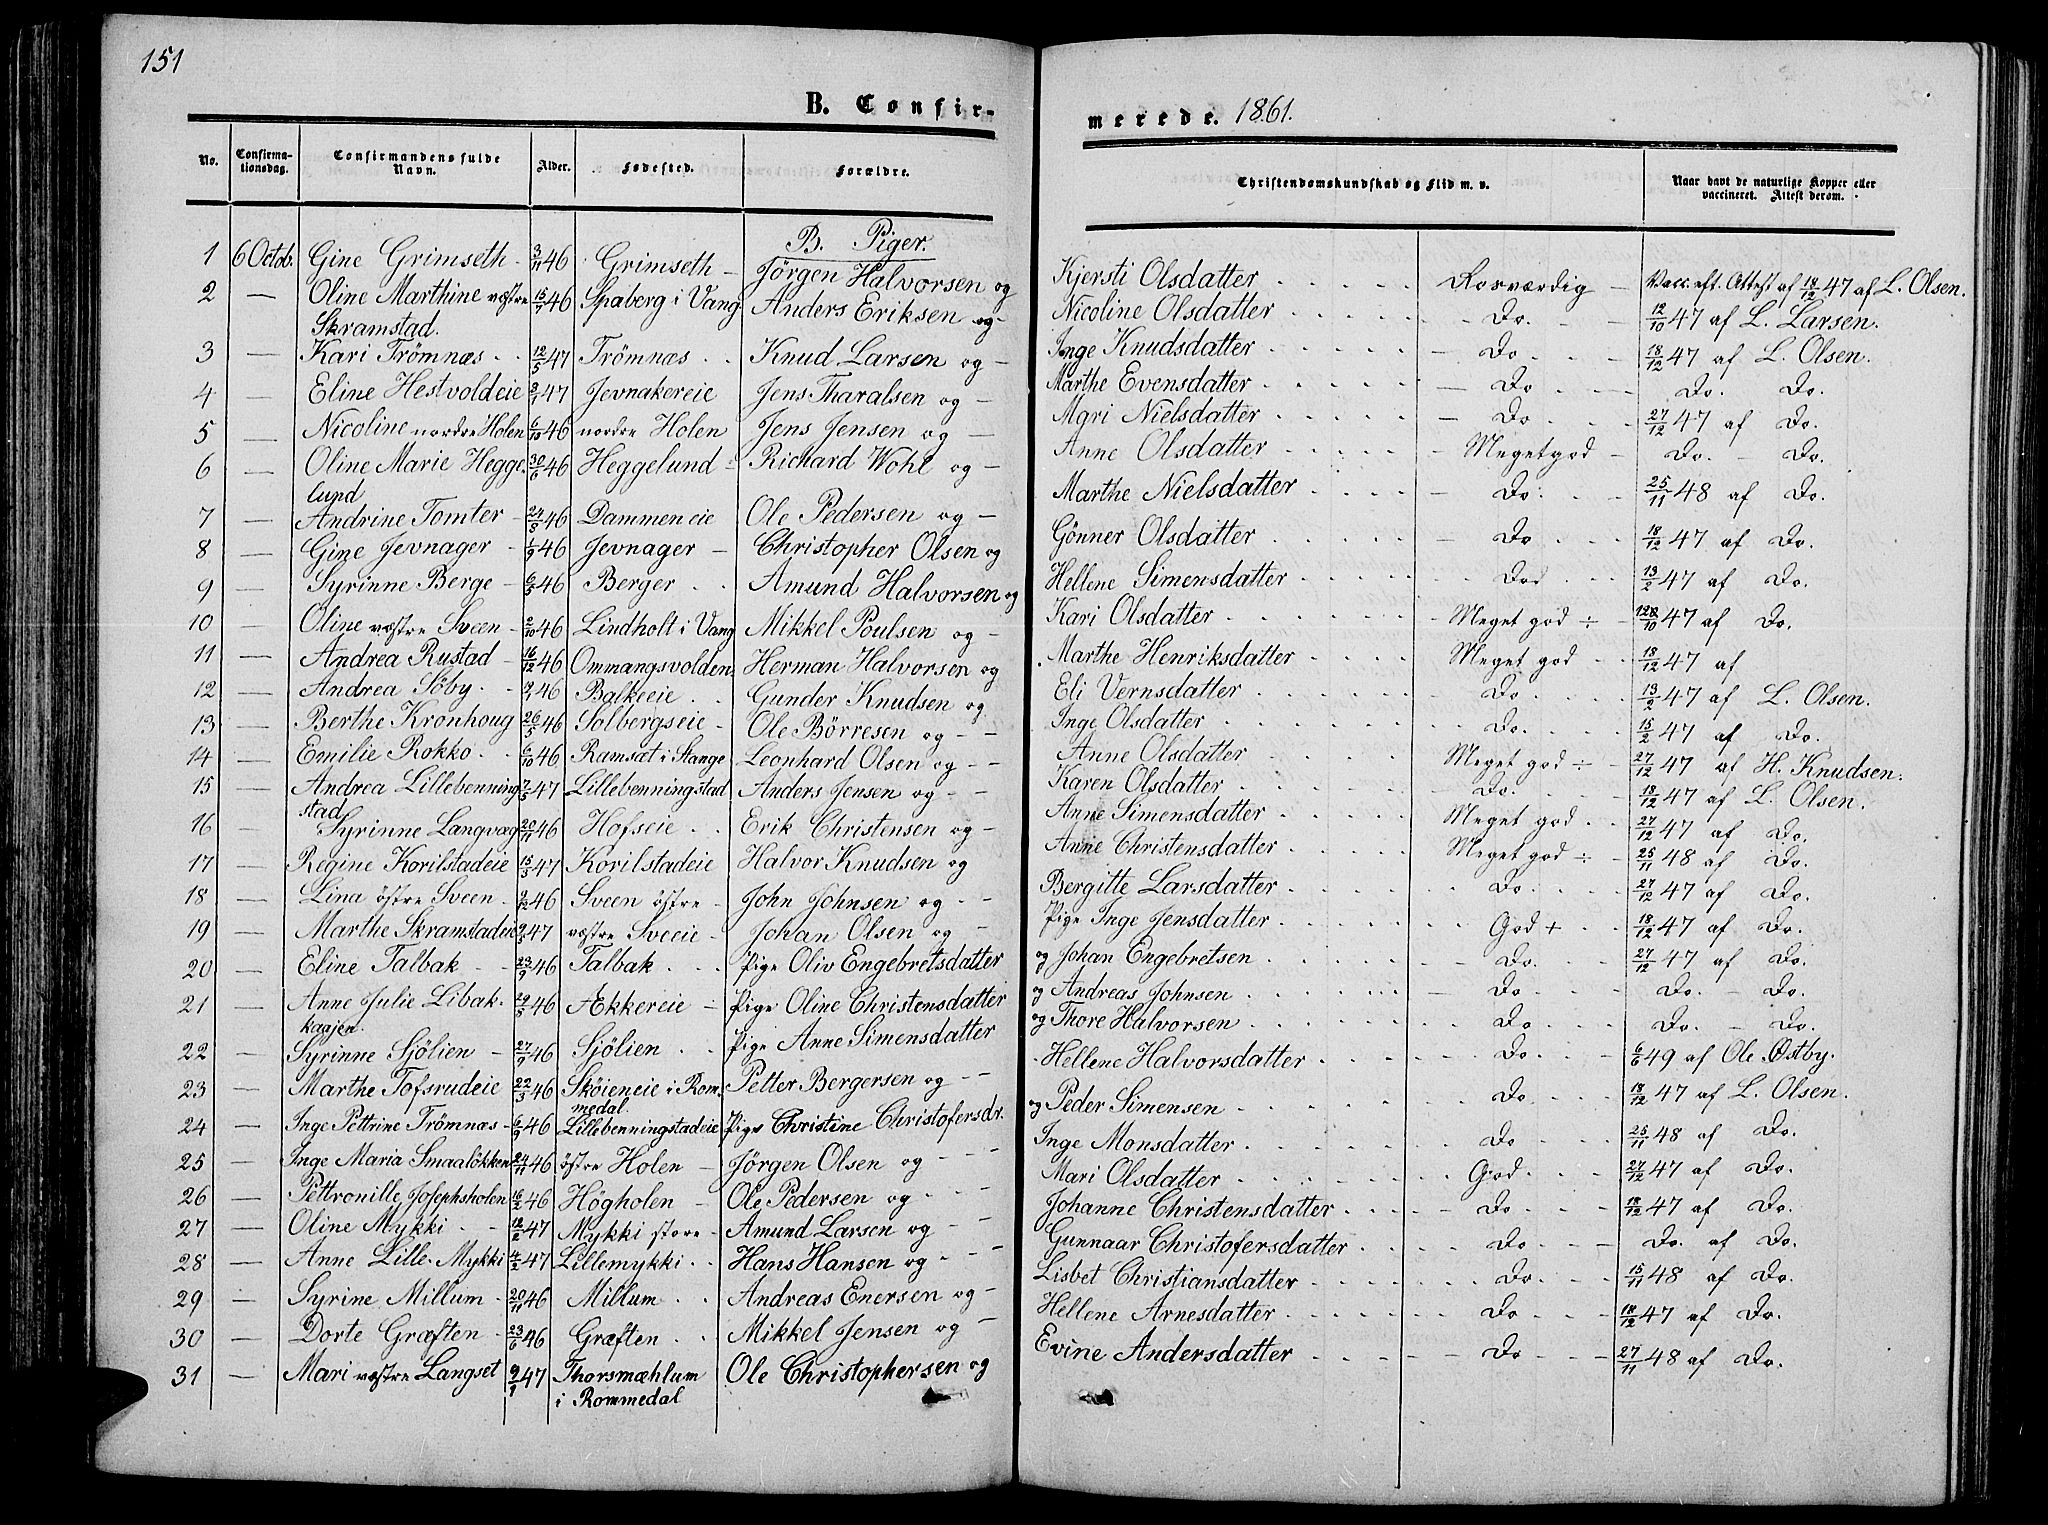 151
B. Confir-
merede. 1861.
No. Confirma-tionsdag. Confirmandens fulde Navn. Alder. Fødested. Forældre. Christendomskundskab og Flid m. v. Naar havt de naturlige Kopper eller vaccineret. Attest derom.
B. Piger.
1 6 Octob. Gine Grimseth 3/11 46 Grimseth Jörgen Halvorsen og Kjersti Olsdatter Rosværdig Vacc. eft. Attest af 18/12 47 af L. Olsen.
2 — Oline Marthine væstre Skramstad. 15/7 46 Spaberg i Vang Anders Eriksen og Nicoline Olsdatter Do. 12/10 47 af L. Larsen.
3 — Kari Trömnæs 12/5 47 Trömnæs Knud Larsen og Inge Knudsdatter Do 18/12 47 af L. Olsen.
4 — Eline Hestvoldeie 47 Jevnakereie Jens Tharalsen og Marthe Evensdatter Do Do. Do.
5 — Nicoline nordre Holen 6/10 46 nordre Holen Jens Jensen og Mari Nielsdatter Do 27/12 47 af Do.
6 — Oline Marie Heggelund 30/6 46 Heggelund Richard Wohl og Anne Olsdatter Megetgod Do. Do.
7 — Andrine Tomter 24/8 46 Dammeneie Ole Pedersen og Marthe Nielsdatter Do. 25/11 48 af Do.
8 — Gine Jevnager 1/9 46 Jevnager Christopher Olsen og Gönner Olsdatter Do 18/12 47 af Do.
9 — Syrinne Berge 6/5 46 Berger Amund Halvorsen og Hellene Simensdatter Do 13/2 47 af Do.
10 — Oline væstre Sveen 2/10 46 Lindholt i Vang Mikkel Poulsen og Kari Olsdatter Meget god ÷ 47 af Do.
11 — Andrea Rustad 16/12 46 Ommangsvolden Herman Halvorsen og Marthe Henriksdatter Meget god 18/12 47 af
12 — Andrea Söby 46 Balkeeie Gunder Knudsen og Eli Vernsdatter Do. 13/2 47 af L. Olsen.
13 — Berthe Kronhoug 26/5 46 Solbergseie Ole Börresen og Inge Olsdatter Do. 15/2 47 af Do.
14 — Emilie Rokko 6/10 46 Ramsæt i Stange Leonhard Olsen og Anne Olsdatter Meget god ÷ 27/12 47 af H. Knudsen.
15 — Andrea Lillebenningstad 7/5 47 Lillebenningstad Anders Jensen og Karen Olsdatter Do. 18/12 47 af L. Olsen.
16 — Syrinne Langvæg 20/11 46 Hofseie Erik Christensen og Anne Simensdatter Meget god 27/12 47 af Do.
17 — Regine Korilstadeie 15/3 47 Korilstadeie Halvor Knudsen og Anne Christensdatter Meget god ÷ 25/11 48 af Do.
18 — Lina östre Sveen 46 Sveen östre John Johnsen og Bergitte Larsdatter Do. 27/12 47 af Do.
19 — Marthe Skramstadeie 47 væstre Sveeie Johan Olsen og Pige Inge Jensdatter God + 18/12 47 af Do.
20 — Eline Talbak 23/9 46 Talbak Pige Oliv Engebretsdatter og Johan Engebretsen Do. 27/12 47 af Do.
21 — Anne Julie Libakkaajen. 29/5 46 Ækkereie Pige Oline Christensdatter og Andreas Johnsen Do Do. Do.
22 — Syrinne Sjölien 27/9 46 Sjölien Pige Anne Simensdatter og Thore Halvorsen Do Do. Do.
23 — Marthe Tofsrudeie 22/3 46 Sköieneie i Rommedal. Petter Bergersen og Hellene Halvorsdatter Do 6/6 49 af Ole Östby.
24 — Inge Pettrine Trömnæs 6/9 46 Lillebenningstadeie Pige Christine Christofersdr. og Peder Simensen Do 18/12 47 af L. Olsen.
25 — Inge Maria Smaalökken 24/11 46 östre Holen Jörgen Olsen og Inge Monsdatter Do 25/11 48 af Do.
26 — Pettronille Josephsholen 16/2 46 Högholen Ole Pedersen og Mari Olsdatter God 27/12 47 af Do.
27 — Oline Mykki 18/2 47 Mykki store Amund Larsen og Johanne Christensdatter Do 18/12 47 af Do.
28 — Anne Lille-Mykki 4/2 47 Lillemykki Hans Hansen og Gunnaar Christofersdatter Do Do. af Do.
29 — Syrine Millum 20/11 46 Millum Andreas Enersen og Lisbet Christiansdatter Do. 15/11 48 af Do.
30 — Dorte Græften 23/6 46 Græften Mikkel Jensen og Hellene Arnesdatter Do 18/12 47 af Do.
31 — Mari væstre Langset 9/1 47 Thorsmæhlum i Rommedal Ole Christophersen og Evine Andersdatter Do 27/11 48 af Do.